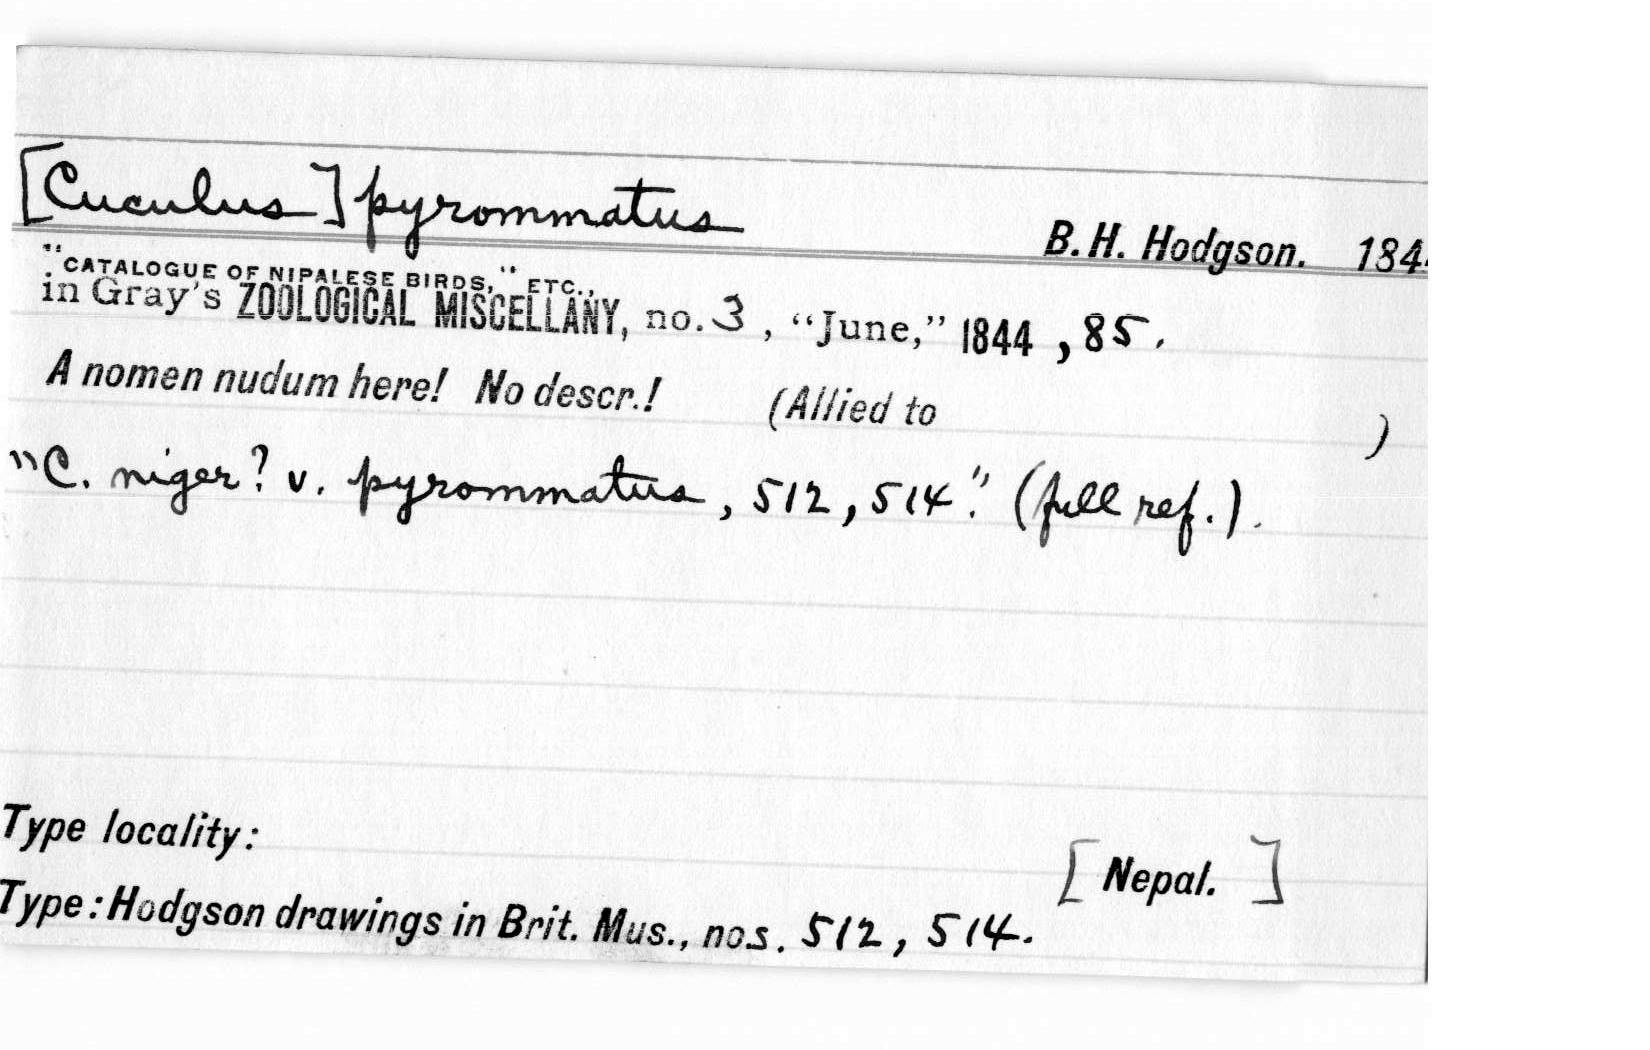 [Cuculus] pyrommatus B. H. Hodgson. 184
"CATALOGUE OF NIPALESE BIRDS," ETC.,
in Gray's ZOOLOGICAL MISCELLANY, no. 3, "June," 1844, 85.
A nomen nudum here! No descr.! (Allied to )
"C. niger? v. pyrommatus, 512, 514." (full ref.).
Type locality: [Nepal.]
Type: Hodgson drawings in Brit. Mus., nos. 512, 514.